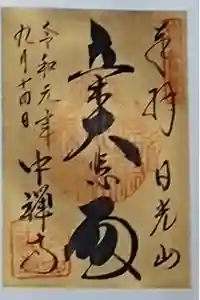 奉拝 日光山
立木大悲
中禅寺
令和元年
九月十四日